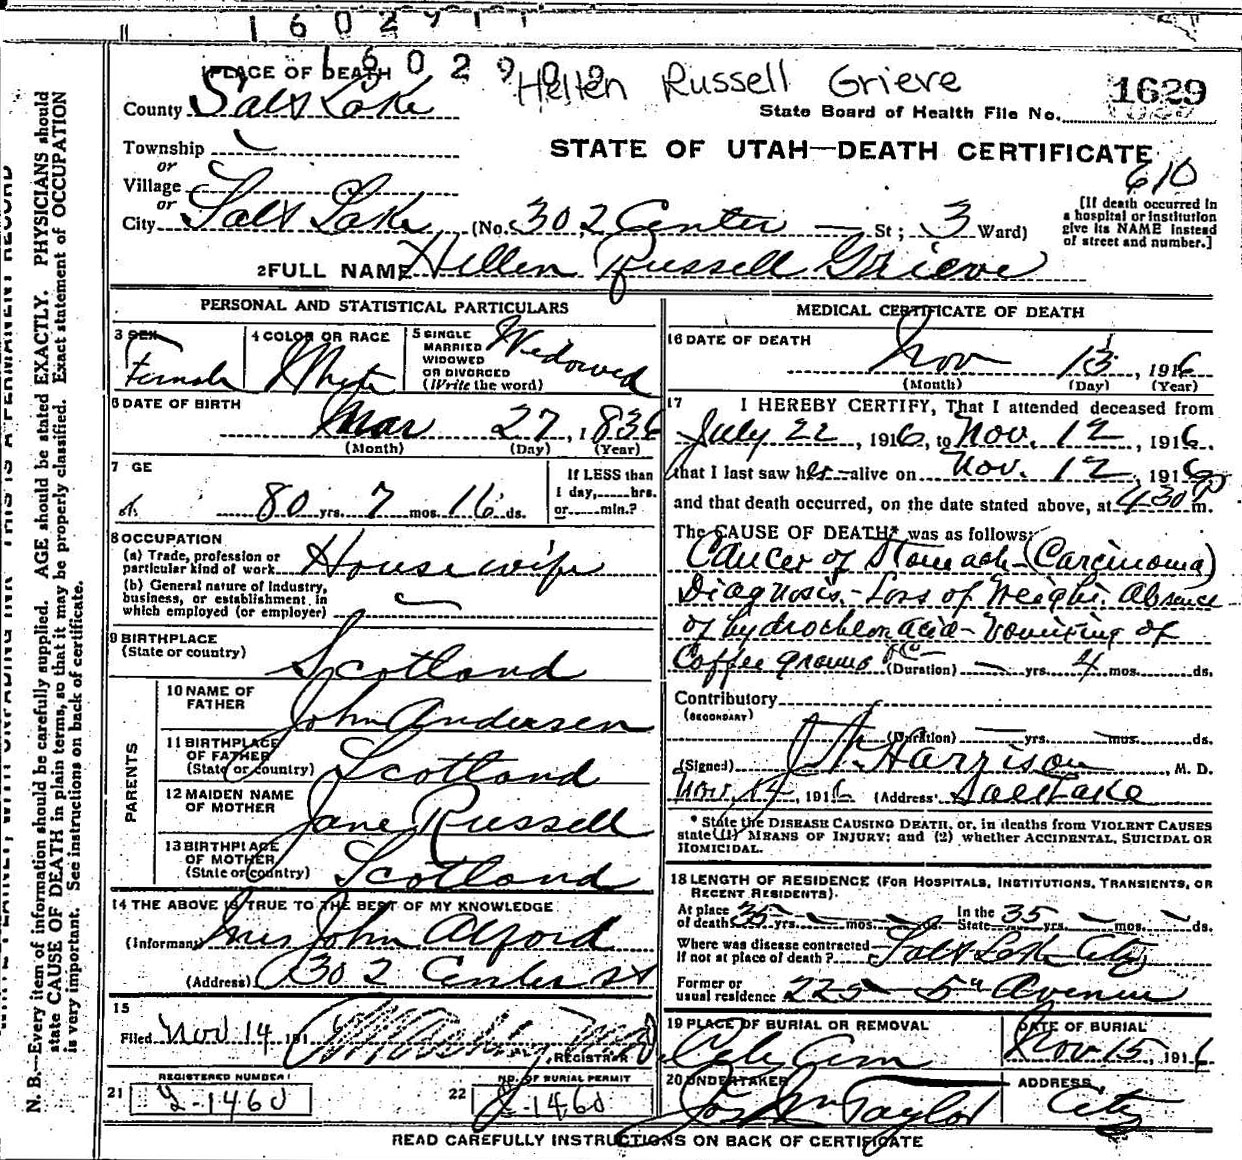 1 6 0 2 9 1 1
1 6 0 2 9 0 0
Hellen Russell Grieve
1629
PLACE OF DEATH
County Salt Lake
State Board of Health File No.
STATE OF UTAH—DEATH CERTIFICATE
Township
or
Village
or
City Salt Lake (No. 302 Center St; 3 Ward)
610
[If death occurred in
a hospital or institution
give its NAME instead
of street and number.]
2 FULL NAME Hellen Russell Grieve
PERSONAL AND STATISTICAL PARTICULARS
3 SEX Female
4 COLOR OR RACE White
5 SINGLE
MARRIED
WIDOWED
OR DIVORCED
(Write the word) Widowed
6 DATE OF BIRTH
Mar 27, 1836
(Month) (Day) (Year)
7 GE
80 yrs. 7 mos. 16 ds.
If LESS than
1 day,......hrs.
or......min.?
8 OCCUPATION
(a) Trade, profession or
particular kind of work Housewife
(b) General nature of industry,
business, or establishment in
which employed (or employer)
9 BIRTHPLACE
(State or country) Scotland
PARENTS
10 NAME OF
FATHER John Andersen
11 BIRTHPLACE
OF FATHER
(State or country) Scotland
12 MAIDEN NAME
OF MOTHER Jane Russell
13 BIRTHPLACE
OF MOTHER
(State or country) Scotland
14 THE ABOVE IS TRUE TO THE BEST OF MY KNOWLEDGE
(Informant) Mrs John Alford
(Address) 302 Center st
15
Filed Nov 14 191
REGISTRAR
REGISTERED NUMBER
21 2-1460
NO. OF BURIAL PERMIT
22 2-1460
MEDICAL CERTIFICATE OF DEATH
16 DATE OF DEATH
Nov 13, 1916
(Month) (Day) (Year)
17 I HEREBY CERTIFY, That I attended deceased from
July 22, 1916, to Nov. 12, 1916.
that I last saw her alive on Nov. 12, 1916
and that death occurred, on the date stated above, at 4 30 P m.
The CAUSE OF DEATH* was as follows:
Cancer of Stomach (Carcinoma)
Diagnosis - Loss of Weight. Absence
of hydrochlor acid - Vomiting of
Coffee (Duration) yrs. 4 mos. ds.
Contributory
(SECONDARY)
(Duration) yrs. mos. ds.
(Signed) Harrison, M. D.
Nov. 14, 1916 (Address) Salt Lake
* State the DISEASE CAUSING DEATH, or, in deaths from VIOLENT CAUSES
state (1) MEANS OF INJURY; and (2) whether ACCIDENTAL, SUICIDAL OR
HOMICIDAL.
18 LENGTH OF RESIDENCE (FOR HOSPITALS, INSTITUTIONS, TRANSIENTS, OR
RECENT RESIDENTS).
At place
of death 35 yrs. mos. ds. In the
State 35 yrs. mos. ds.
Where was disease contracted
If not at place of death? Salt Lake City
Former or
usual residence 225 - 5th Avenue
19 PLACE OF BURIAL OR REMOVAL
City Cem
DATE OF BURIAL
Nov 15, 1916
20 UNDERTAKER
Taylor
ADDRESS
City
READ CAREFULLY INSTRUCTIONS ON BACK OF CERTIFICATE
N. B.—Every item of information should be carefully supplied. AGE should be stated EXACTLY. PHYSICIANS should
state CAUSE OF DEATH in plain terms, so that it may be properly classified. Exact statement of OCCUPATION
is very important. See instructions on back of certificate.